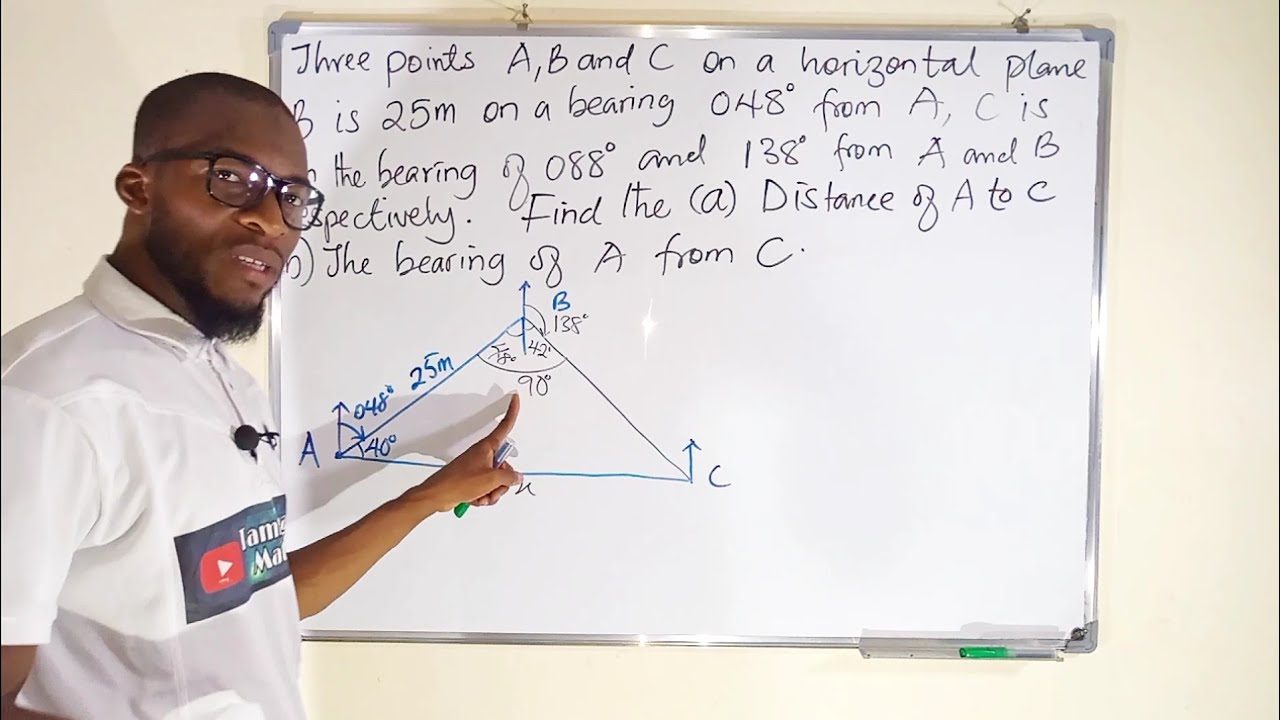 Three points A, B and C on a horizontal plane
B is 25m on a bearing 048° from A, C is
the bearing of 088° and 138° from A and B
espectively. Find the (a) Distance of A to C
) The bearing of A from C.
B
138°
48° 42°
25m
90°
048°
A 40°
C
x